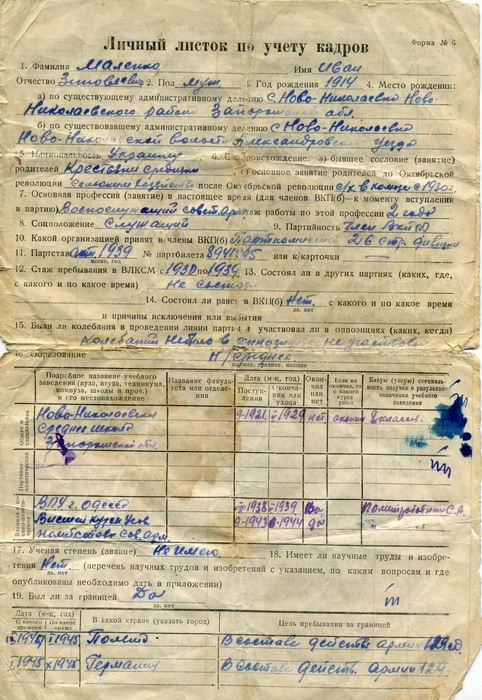 Личный листок по учету кадров
Форма № 6
1. Фамилия Маленко Имя Иван
Отчество 2. Пол муж. 3. Год рождения 1914 4. Место рождения:
а) по существующему административному делению с. Ново-Николаевка Ново-
Николаевского района Запорожской обл.
б) по существовавшему административному делению с. Ново-Николаевка
Ново-Николаевской волости Александровского уезда
5. Национальность Украинец 6. Соцпроисхождение: а) бывшее сословие (занятие)
родителей Крестьяне средняки б) Основное занятие родителей до Октябрьской
революции Сельское хозяйство после Октябрьской революции с/х в колхозе с 1930г.
7. Основная профессия (занятие) в настоящее время (для членов ВКП(б)—к моменту вступления
в партию) Военнослужащий совет. Арм. стаж работы по этой профессии 2 года
8. Соцположение Служащий 9. Партийность Член ВКП(б)
10. Какой организацией принят в члены ВКП(б) Парткомиссией 26 стр. дивизии
11. Партстаж 1939 № партбилета или к/карточки —
месяц, год
12. Стаж пребывания в ВЛКСМ с 1930 по 1939 13. Состоял ли в других партиях (каких, где,
с какого и по какое время) Не состоял
14. Состоял ли ранее в ВКП(б) Нет. с какого и по какое время
да, нет
и причины исключения или выбытия
15. Были ли колебания в проведении линии партии и участвовал ли в оппозициях (каких, когда)
Колебаний не было в оппозициях не участвовал
16. Образование Н/среднее
высшее, среднее, низшее
Подробное название учебного заведения (вуза, втуза, техникума, комвуза, школы и проч.) и его местонахождение
Название факультета или отделения
Дата (м-ц, год)
Поступления
Окончания или ухода
Окончил или нет
Если не окончил, то с какого курса ушел
Какую (узкую) специальность получил в результате окончания учебного заведения
Ново-Николаевская 1921 1929 нет окончил 8 классов.
средняя школа
Запорожской обл.
ВПУ г. Одесса 1938 1939 Да Политработник С.А.
Высшие курсы усов. 1943 1944 да
политсостава Сов. арм.
17. Ученая степень (звание) Не имею 18. Имеет ли научные труды и изобре-
тения Нет. (перечень научных трудов и изобретений с указанием, по каким вопросам и где
да, нет
опубликованы необходимо дать в приложении)
19. Был ли за границей Да
да, нет
Дата (м-ц, год)
С какого времени
По какое время
В какой стране (указать город)
Цель пребывания за границей
1945 Польша В составе действ. армии
1945 1945 Германия В составе действ. армии